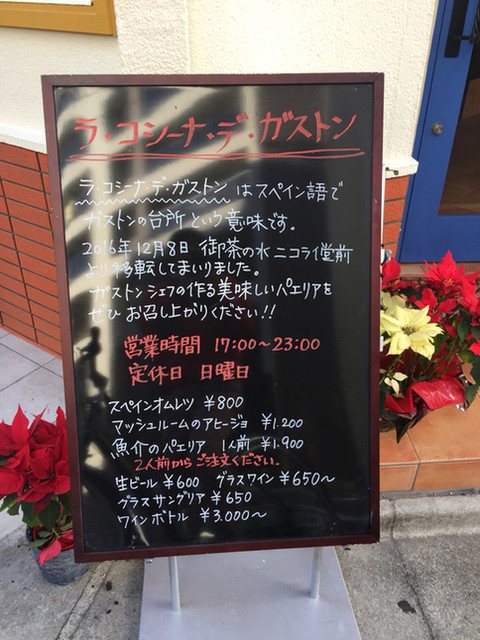 ラ・コシーナ・デ・ガストン
ラ・コシーナ・デ・ガストン はスペイン語で
ガストンの台所という意味です。
2016年12月8日 御茶の水ニコライ堂前
より移転してまいりました。
ガストンシェフの作る美味しいパエリアを
ぜひお召し上がりください!!
営業時間 17:00〜23:00
定休日 日曜日
スペインオムレツ ¥800
マッシュルームのアヒージョ ¥1.200
魚介のパエリア 1人前 ¥1.900
2人前からご注文ください。
生ビール ¥600 グラスワイン ¥650〜
グラスサングリア ¥650
ワインボトル ¥3.000〜